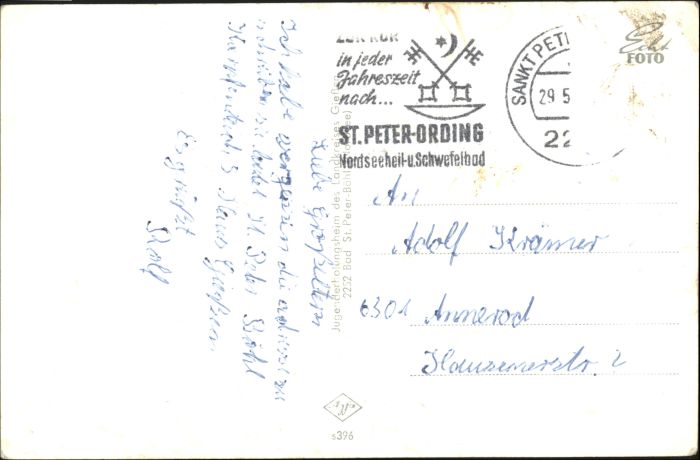 Liebe Großeltern
Ich habe vergessen die adresse zu
schreiben sie lautet St. Peter Böhl
Haus Gießen.
Es grüßt
Rolf
Jugenderholungsheim des Landkreises Gießen
2252 Bad St. Peter-Böhl
ZUR KUR
in jeder
Jahreszeit
nach...
ST. PETER-ORDING
Nordseeheil-u. Schwefelbad
SANKT PET
29.5
22
Echt
FOTO
An
Adolf Krämer
6301 Annerod
Hausenerstr. 2
s396